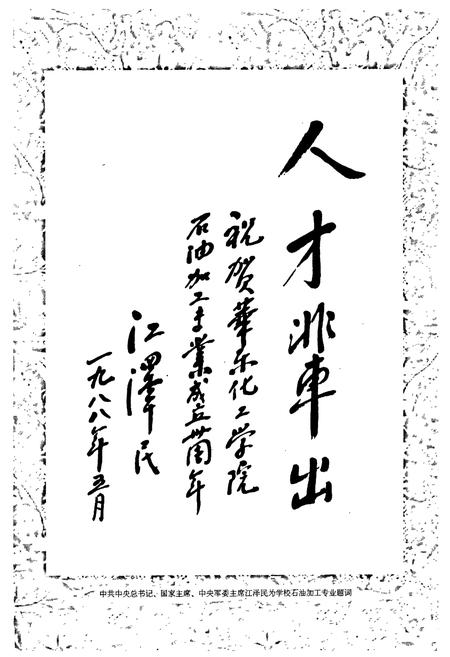 人才輩出
祝贺華东化工学院
石油加工专業成立卅周年
江澤民
一九八八年五月
中共中央总书记、国家主席、中央军委主席江泽民为学校石油加工专业题词